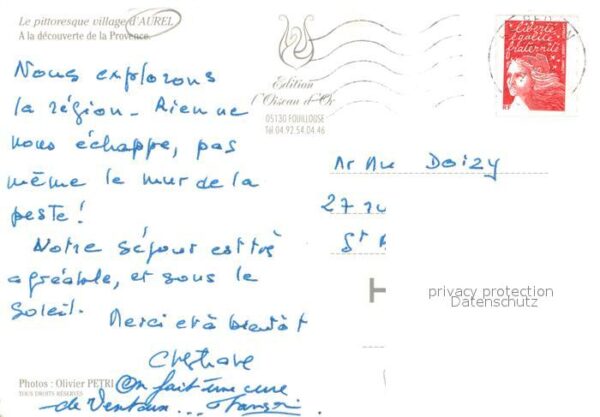 Le pittoresque village d'AUREL
A la découverte de la Provence.
Nous explorons
la région - Rien ne
nous échappe, pas
même le mur de la
peste!
Notre séjour est très
agréable, et sous le
soleil.
Merci et à bientôt
On fait une cure
de Ventoux...
Photos : Olivier PETRI
TOUS DROITS RÉSERVÉS
Edition
l'Oiseau d'Or
05130 FOUILLOUSE
Tél 04 92 54 04 46
liberté
égalité
fraternité
Mr Me Doizy
27 ru
St
H
privacy protection
Datenschutz